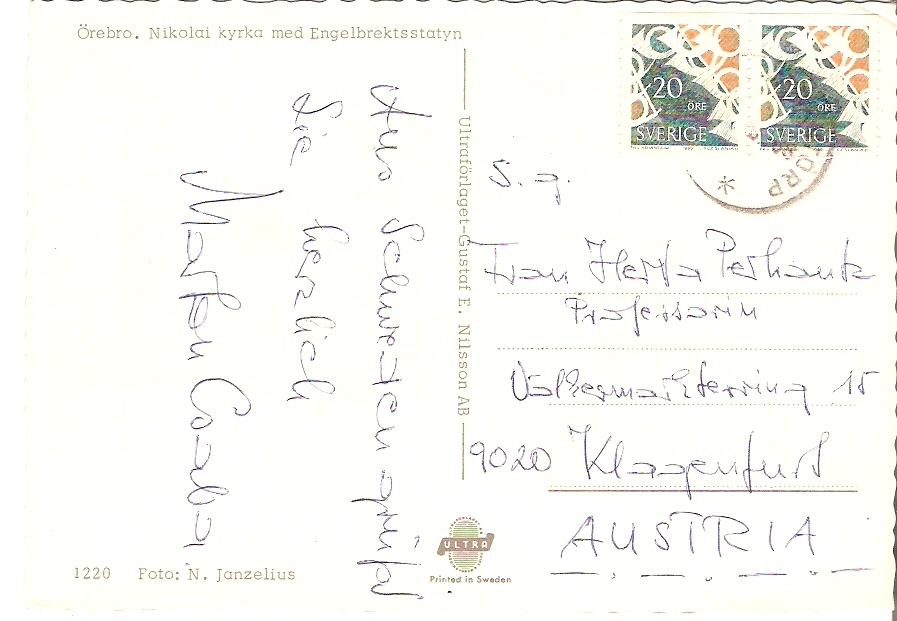 Örebro. Nikolai kyrka med Engelbrektsstatyn
Aus Schweden grüßt
Sie herzlich
Marton Csaba
Ultraförlaget-Gustaf E. Nilsson AB
20
ÖRE
SVERIGE
20
ÖRE
SVERIGE
ORP
S. g.
Frau Herta
Professorin
Völkermarkterring 15
9020 Klagenfurt
AUSTRIA
ULTRA
Printed in Sweden
1220 Foto: N. Janzelius